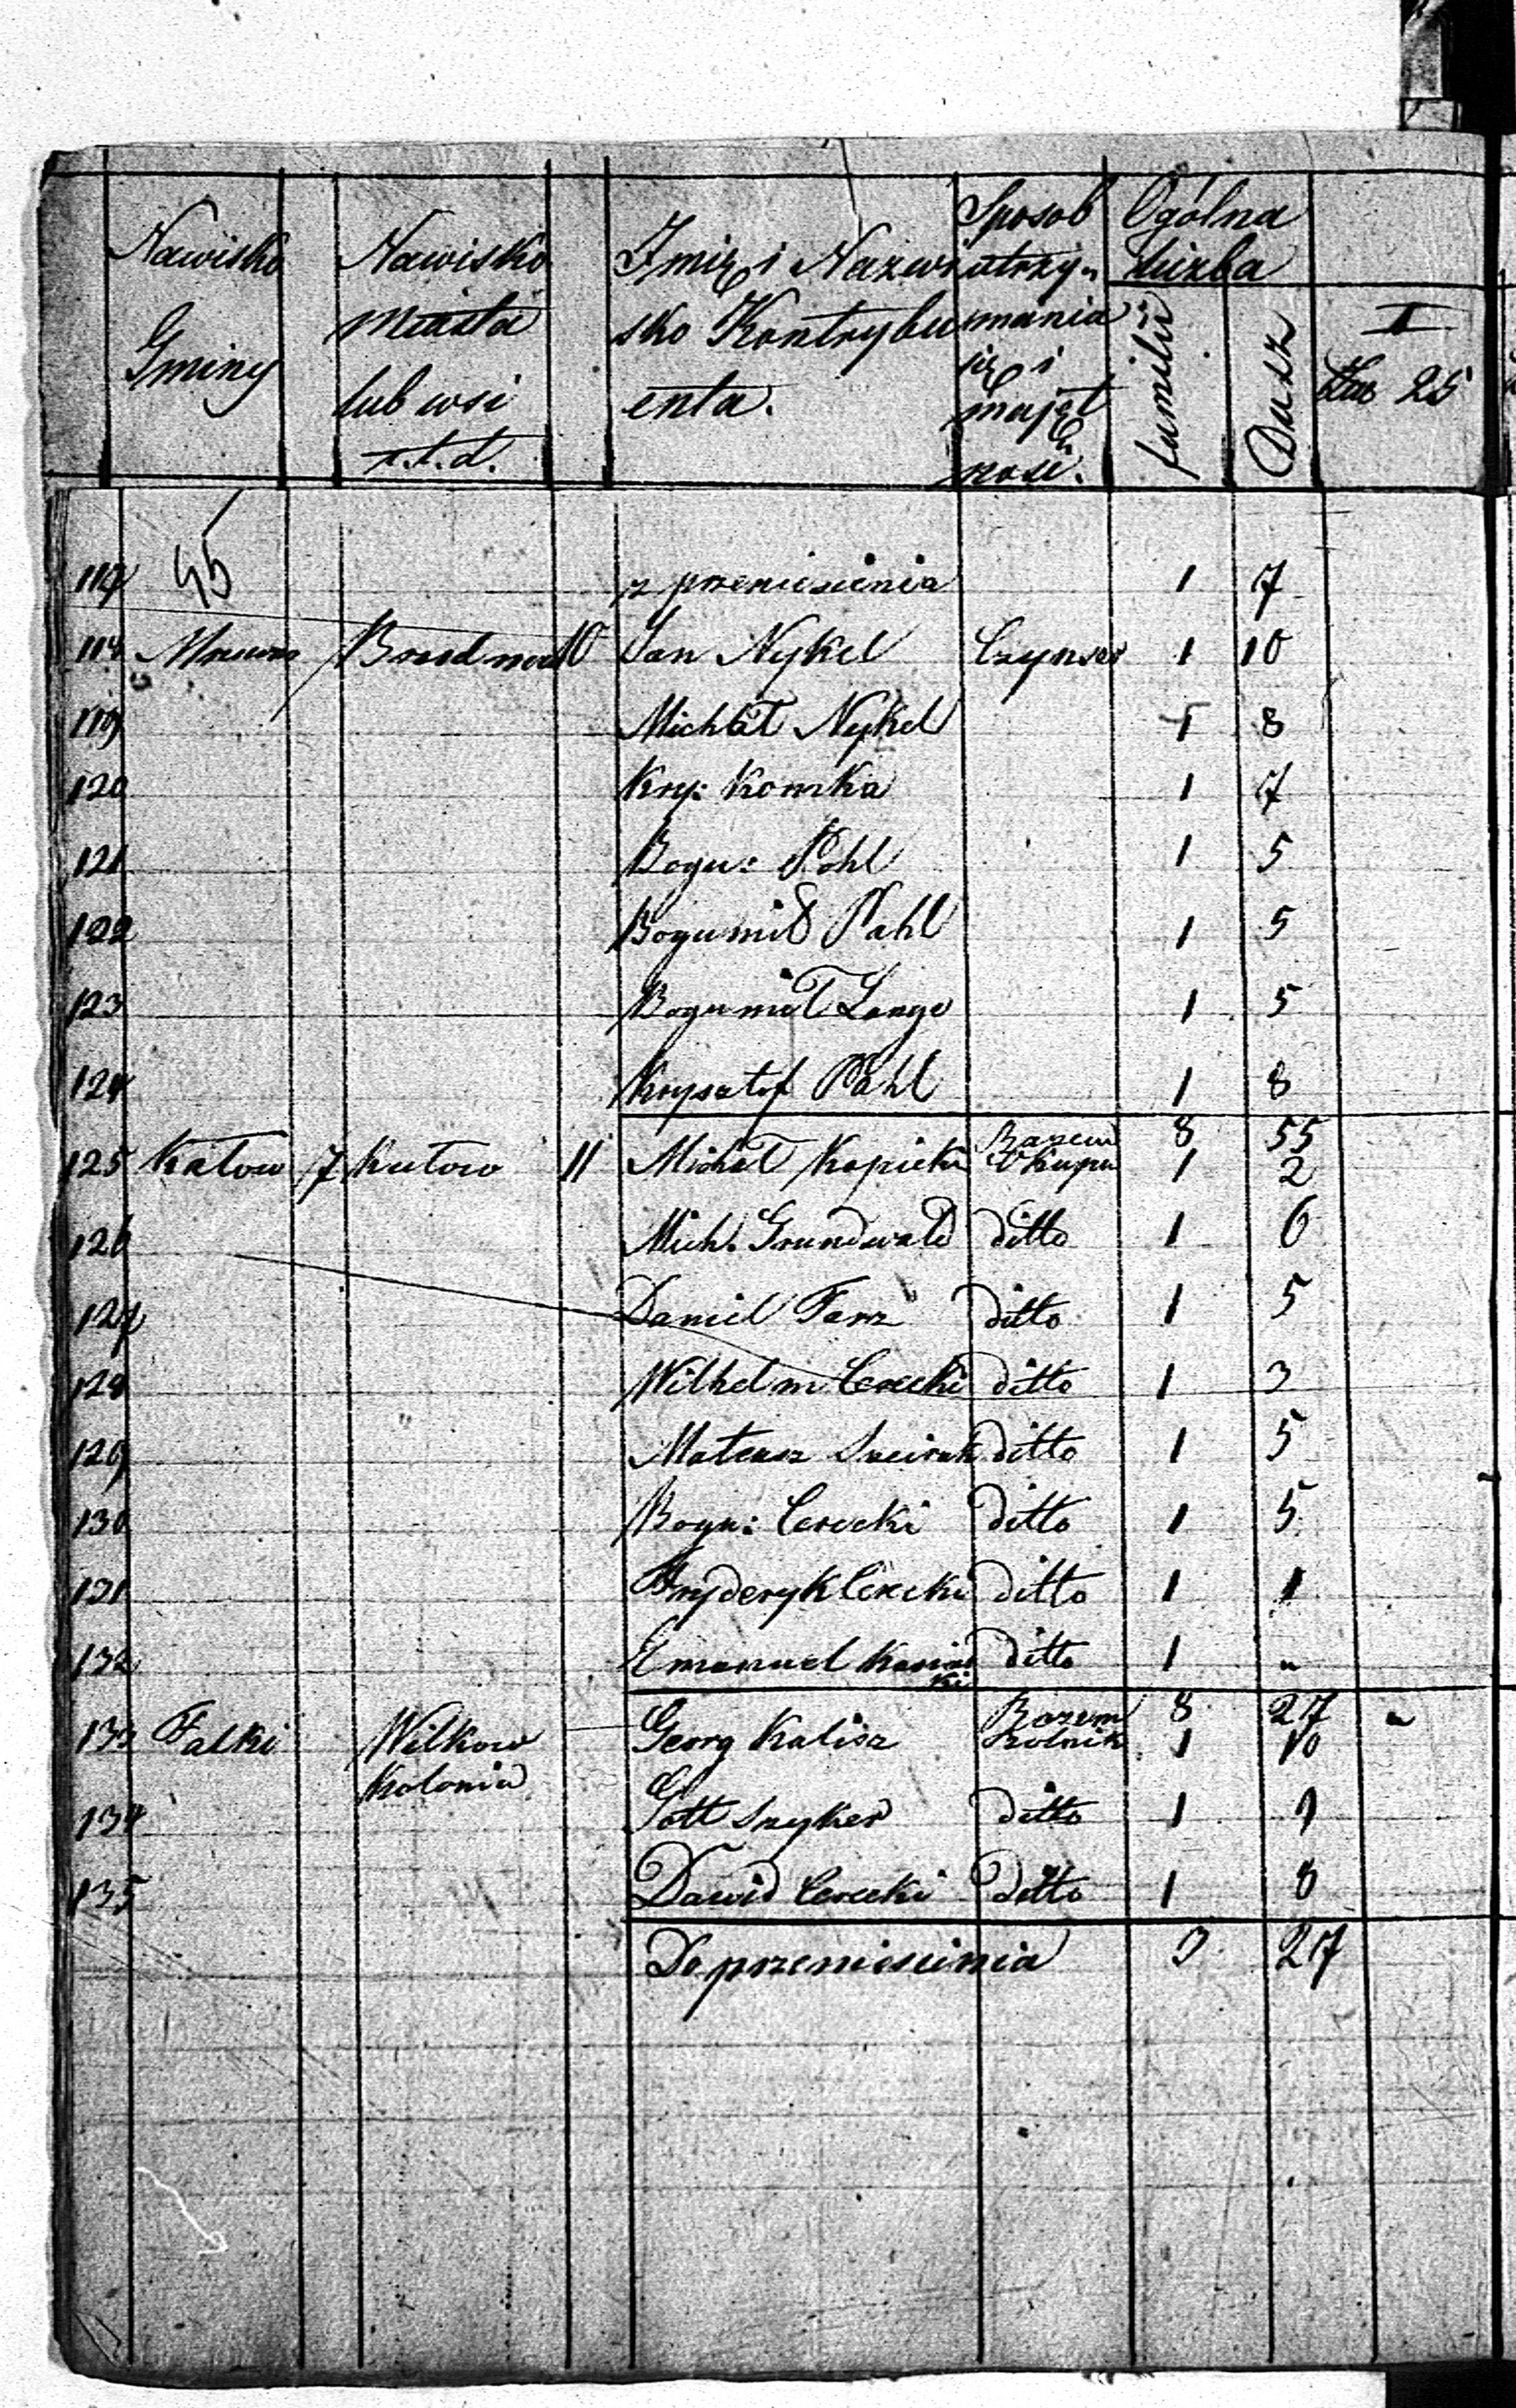 Nawisko Gminy
Nawisko miasta lub wsi t.t.d.
Imię i Nazwisko Kontrybuenta.
Sposob utrzymania się i majętnosci.
Ogólna liczba
familii
Dusz
I
Klas 25
45
117 z przeniesienia 1 7
118 10 Jan Nykel Czynsz 1 10
119 Michał Nykel 1 8
120 Kry: Komka 1 7
121 Bogu: Pohl 1 5
122 Bogumił Pahl 1 5
123 Bogumił Lange 1 5
124 Krysztof Pahl 1 8
Razem 8 55
125 Katow 7 Kutow 11 Michał Kopicki Okupn 1 2
126 Mich. Grundwald ditto 1 6
127 Daniel Farz ditto 1 5
128 Wilhelm Cerecki ditto 1 3
129 Mateusz ditto 1 5
130 Bogu: Cerecki ditto 1 5
131 Fryderyk Cerecki ditto 1 1
132 Emanuel ditto 1 "
Razem 8 27 "
133 Falki Wilkow Georg Kalisz Rolnik 1 10
Kolonia
134 Gott Szyker ditto 1 9
135 Dawid Cerecki ditto 1 8
Do przeniesienia 3 27